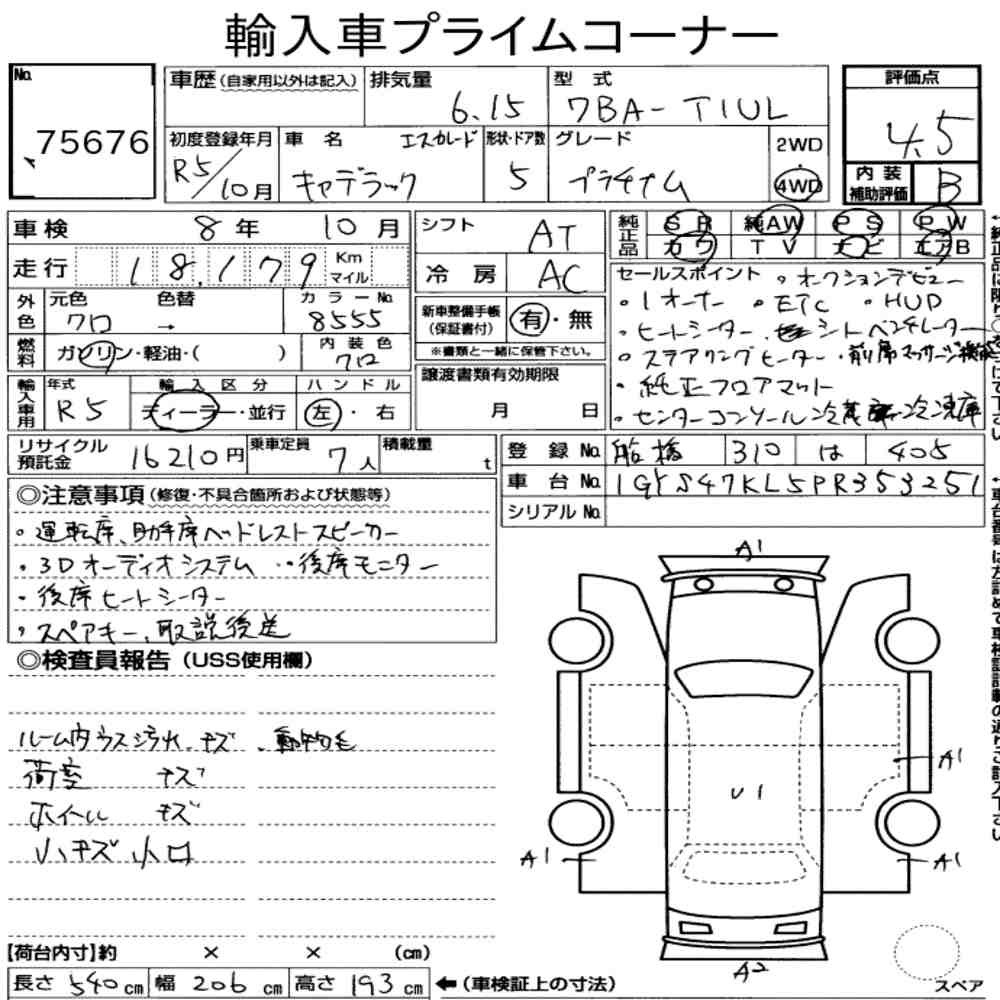 輸入車プライムコーナー
No. 75676
車歴(自家用以外は記入) 排気量 6.15 型式 7BA-T1UL
評価点 4.5
初度登録年月 R5/10月 車名 エスカレード キャデラック 形状・ドア数 5 グレード プラチナム 2WD・4WD
内装補助評価 B
車検 8年 10月 シフト AT
純正品 SR 純AW PS PW
カワ TV ナビ エアB
走行 18,179 Km マイル 冷房 AC
外色 元色 クロ 色替 → カラーNo. 8555
新車整備手帳(保証書付) 有・無
※書類と一緒に保管下さい。
燃料 ガソリン・軽油・( ) 内装色 クロ
輸入車用 年式 R5 輸入区分 ディーラー・並行 ハンドル 左・右
譲渡書類有効期限 月 日
セールスポイント ・オークションデビュー
・1オーナー ・ETC ・HUD
・ヒートシーター ・シートベンチレーター
・ステアリングヒーター ・前席マッサージ機能
・純正フロアマット
・センターコンソール冷蔵庫・冷凍庫
リサイクル預託金 16210円 乗車定員 7人 積載量 t
登録No. 船橋 310 は 405
車台No. 1GYS47KL5PR353251
シリアルNo.
◎注意事項(修復・不具合箇所および状態等)
・運転席、助手席ヘッドレストスピーカー
・3Dオーディオシステム ・後席モニター
・後席ヒートシーター
・スペアキー、取説後送
◎検査員報告(USS使用欄)
ルーム内ウス汚れ、キズ、動物毛
荷室 キズ
ホイール キズ
小キズ 小凹
A1
A1
U1
A1
A1
A2
スペア
【荷台内寸】約 × × (cm)
長さ 540cm 幅 206cm 高さ 193cm ←(車検証上の寸法)